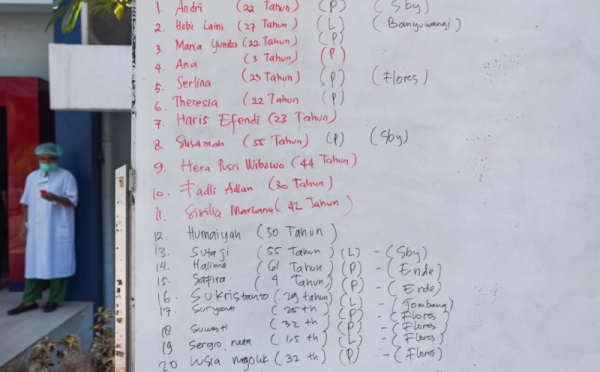 1. Andri (22 Tahun) (P) (Sby)
2. Hobi Laini (27 Tahun) (L) (Banyuwangi)
3. Maria Yunita (22 Tahun) (P)
4. Ana (3 Tahun) (P)
5. Serlina (23 Tahun) (P) (Flores)
6. Theresia (22 Tahun (P)
7. Haris Efendi (23 Tahun)
8. Susamah (55 Tahun) (P) (Sby)
9. Hera Pusri Wibowo (44 Tahun)
10. Fadli Adlan (30 Tahun)
11. Sirilla Mariana (42 Tahun)
12. Humaiyah (50 Tahun)
13. Sutaji (55 Tahun) (L) - (Sby)
14. Halima (61 Tahun) (P) - (Ende)
15. Safira (4 Tahun) (P) - (Ende)
16. Sukristanto (29 tahun) (L) - (Jombang)
17. Suryani (25 th) (P) - (Flores)
18 Suwasti (32 th) (P) - (Flores)
19 Sergio neta (1,5 th) (L) - (Flores)
20 Lusia ngolu (32 th) (P) - (Flores)